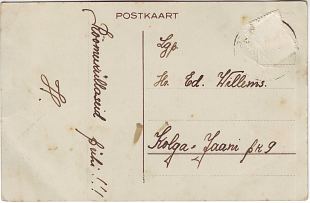 POSTKAART
Rõõmurikkaid
pühi!!
H.
Lgp.
Hr. Ed. Willems.
Kolga-Jaani pk 9